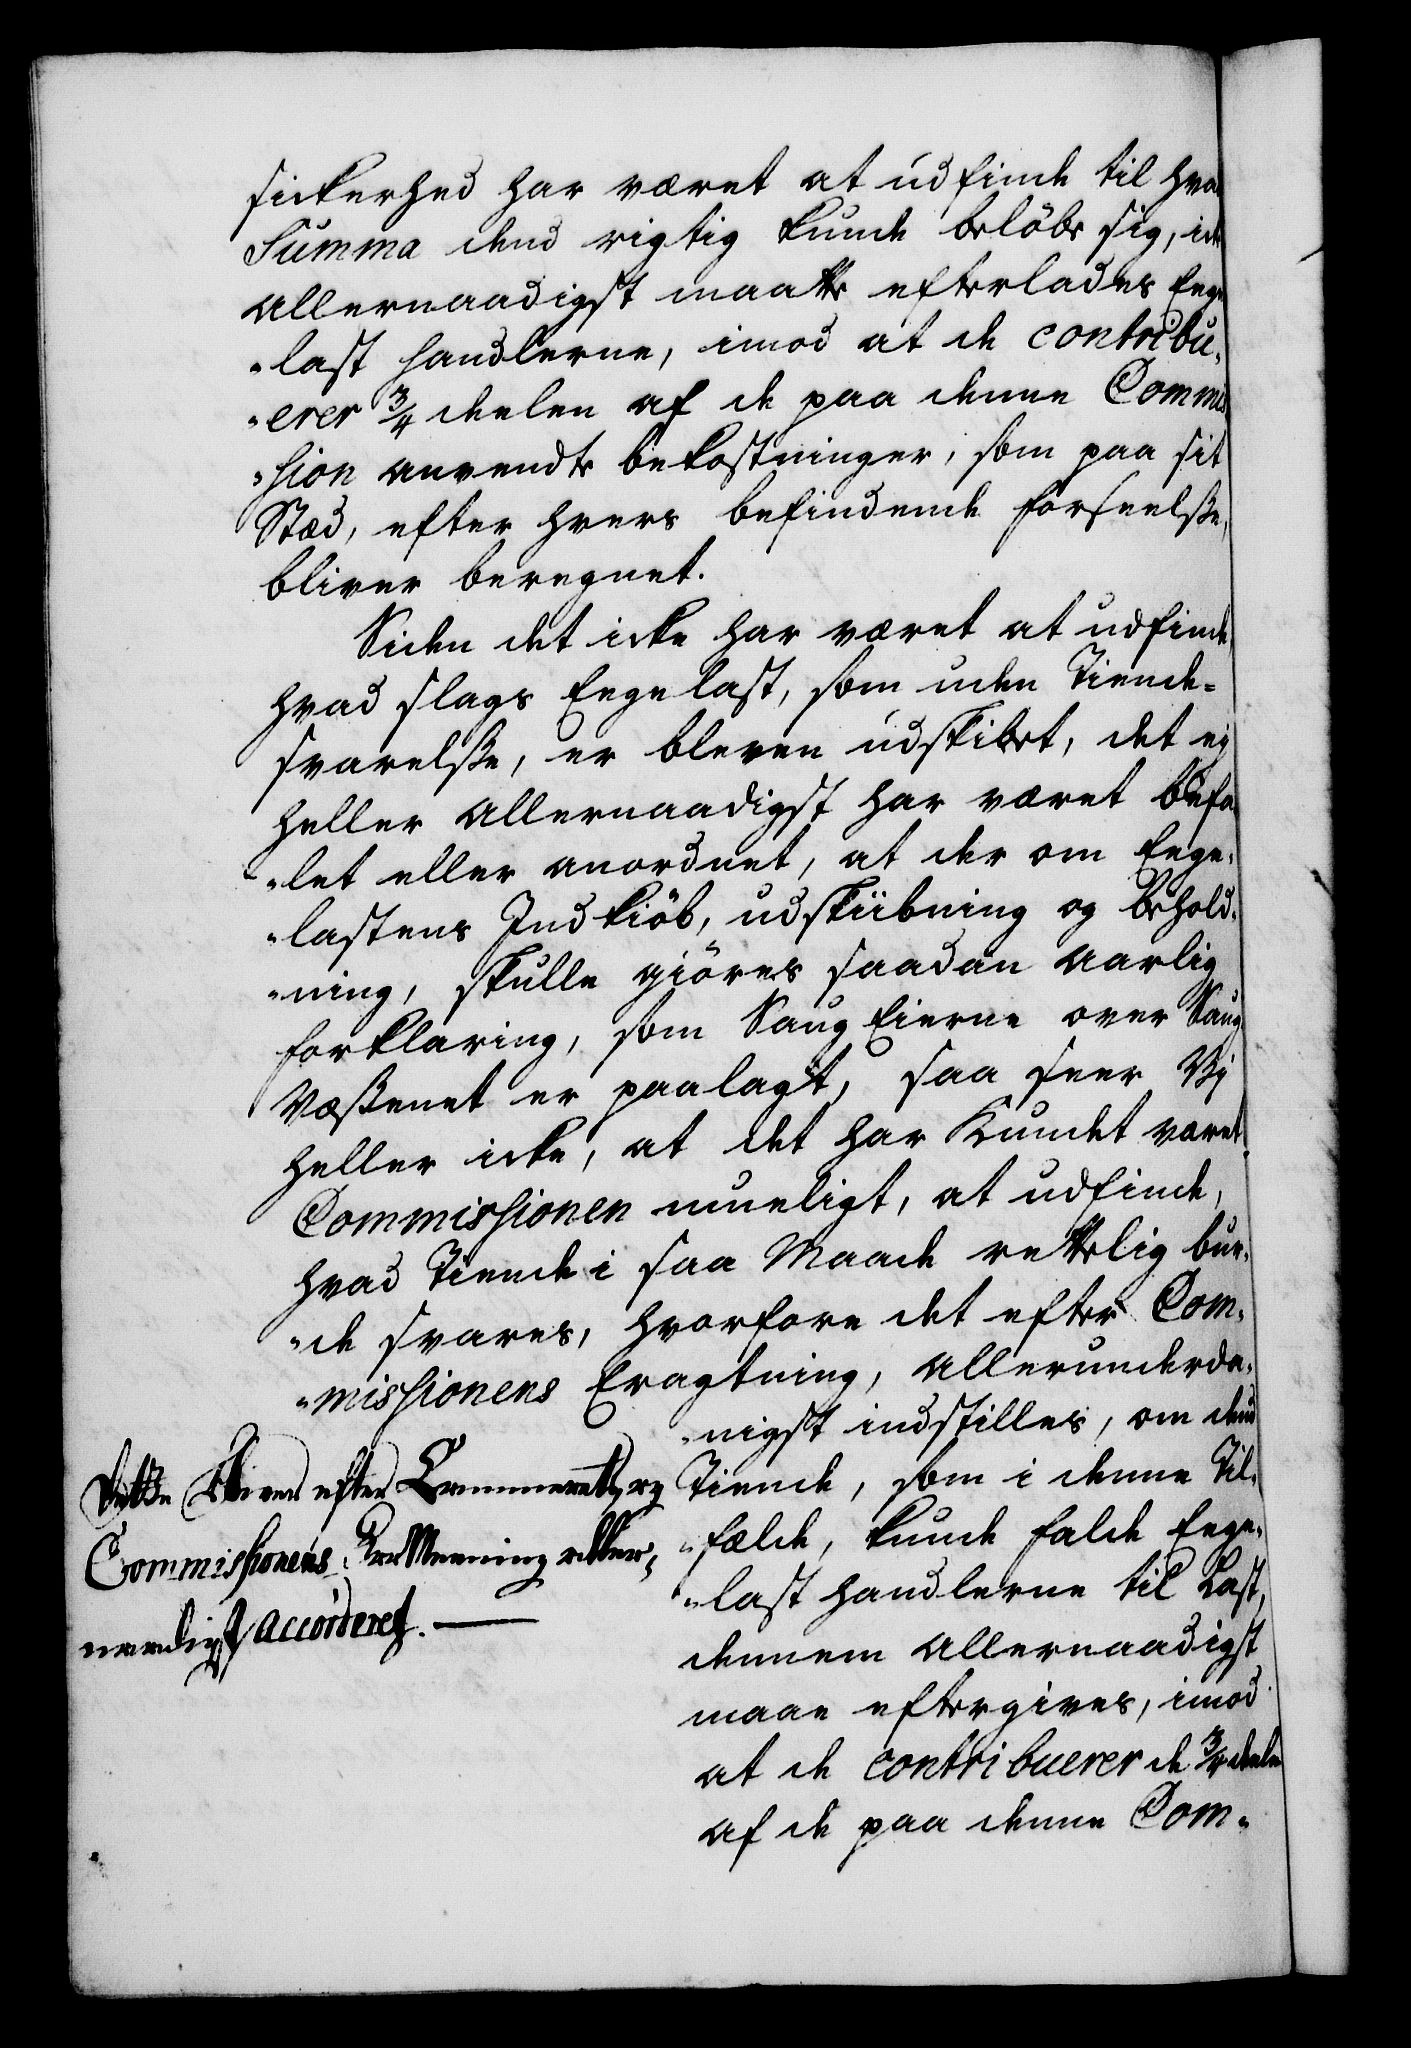 sickerhed har været at udfinde til hva
Summa dend rigtig kunde belöbe sig,
allernaadigst maatte efterlades Eege
"last handlerne, imod at de contribu"
"erer 3/4 deelen af de paa denne Commis
"sion anvendte bekostninger, som paa sit
Stæd, efter hvers befindende forseelße,
bliver beregnet.
Siden det icke har været at udfinde,
hvad slags Eegelast, som uden Tiende-
svarelße, er bleven udskibet, det ej
heller allernaadigst har været befa
"let eller anordnet, at der om Eege"
"lastens Indkiöb, udskiibning og behold"
"ning, skulle giöres saadan aarlig
forklaring, som Saug Eierne over Saug
Væßenet er paalagt, saa seer Vi
heller icke, at det har kundet været
Commissionen mueligt, at udfinde,
hvad Tiende i saa Maade rettelig bur"
"de svares, hvorfore det efter Com"
"missionens Eragtning, allerunderda"
"nigst indstilles, om dend
Tiende, som i denne Til"
"fælde, kunde falde Eege"
"last handlerne til Last,
dennem allernaadigst
maae eftergives, imod
at de contribuerer de 3/4 deele
af de paa denne Com"
Dette bliver efter Cammerets og
Commissionens Meening aller"
naadigst accorderet. —